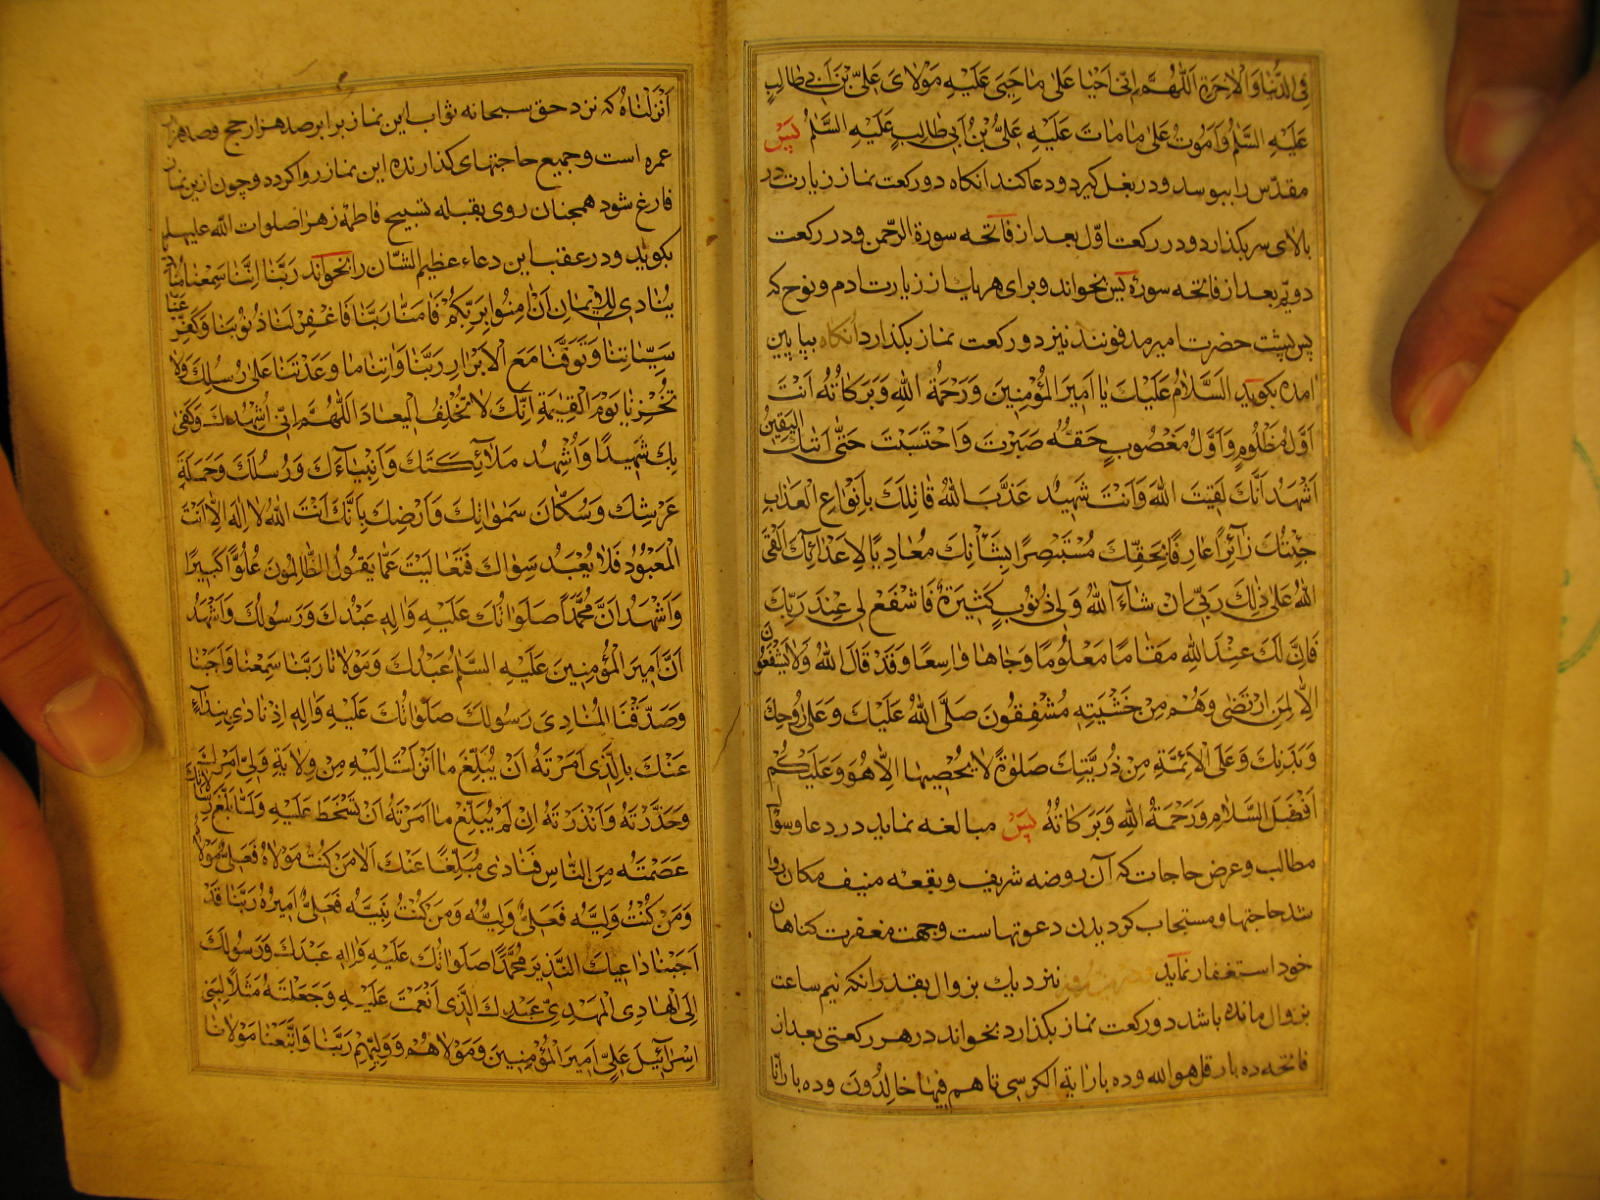 فِی الدُّنْیَا وَالْاٰخِرَةِ اَللّٰهُمَّ اِنّی اَحْیَا عَلٰی مَا حَیِیَ عَلَیْهِ مَوْلَایَ عَلِیُّ بْنُ اَبی طَالِبٍ
عَلَیْهِ السَّلٰمُ وَاَمُوتُ عَلٰی مَا مَاتَ عَلَیْهِ عَلِیُّ بْنُ اَبی طَالِبٍ عَلَیْهِ السَّلٰمُ پس
مقدّس را ببوسد و در بغل کیرد و دعا کند انکاه دو رکعت نماز زیارت در
بالای سر بکذارد و در رکعت اوّل بعد از فاتحه سورة الرّحمن و در رکعت
دویّم بعد از فاتحه سورهٔ یس بخواند و برای هر یك از زیارت ادم و نوح که
پس پشت حضرت امیر مدفونند نیز دو رکعت نماز بکذارد انکاه بپایین
امده بکوید اَلسَّلَامُ عَلَیْكَ یَا اَمیرَ الْمُؤْمِنینَ وَرَحْمَةُ اللّٰهِ وَبَرَکَاتُهُ اَنْتَ
اَوَّلُ مَظْلُومٍ وَاَوَّلُ مَغْصُوبٍ حَقُّهُ صَبَرْتَ وَاحْتَسَبْتَ حَتّٰی اَتٰیكَ الْیَقینُ
اَشْهَدُ اَنَّكَ لَقیتَ اللّٰهَ وَاَنْتَ شَهیدٌ عَذَّبَ اللّٰهُ قَاتِلَكَ بِاَنْوَاعِ الْعَذَابِ
جِئْتُكَ زَآئِرًا عَارِفًا بِحَقِّكَ مُسْتَبْصِرًا بِشَأْنِكَ مُعَادِیًا لِاَعْدَآئِكَ اَلْقٰی
اللّٰهَ عَلٰی ذٰلِكَ رَبّی اِنْ شَآءَ اللّٰهُ وَلی ذُنُوبٌ کَثیرَةٌ فَاشْفَعْ لی عِنْدَ رَبِّكَ
فَاِنَّ لَكَ عِنْدَ اللّٰهِ مَقَامًا مَعْلُومًا وَجَاهًا وَاسِعًا وَقَدْ قَالَ اللّٰهُ وَلَا یَشْفَعُونَ
اِلَّا لِمَنِ ارْتَضٰی وَهُمْ مِنْ خَشْیَتِهِ مُشْفِقُونَ صَلَّی اللّٰهُ عَلَیْكَ وَعَلٰی رُوحِكَ
وَبَدَنِكَ وَعَلَی الْاَئِمَّةِ مِنْ ذُرِّیَّتِكَ صَلٰوةً لَا یُحْصیهَا اِلَّا هُوَ وَعَلَیْکُمْ
اَفْضَلُ السَّلَامِ وَرَحْمَةُ اللّٰهِ وَبَرَکَاتُهُ پس مبالغه نماید در دعا و سؤال
مطالب و عرض حاجات که آن روضه شریف و بقعه منیف مکان روا
شدن حاجتها و مستجاب کردیدن دعوتهاست و جهت مغفرت کناهان
خود استغفار نماید نزدیك بزوال بقدر انکه نیم ساعت
بزوال مانده باشد دو رکعت نماز بکذارد بخواند در هر رکعتی بعد از
فاتحه ده بار قل هو الله و ده بار اٰیة الکرسی تا هم فیها خالدون و ده بار انّا
اَنْزَلْنَاهُ که نزد حق سبحانه ثواب این نماز برابر صد هزار حج و صد هزار
عمره است و جمیع حاجتهای کذارنده این نماز روا کرده و چون ازین نماز
فارغ شود همچنان روی بقبله تسبیح فاطمه زهرا صلوات الله علیها
بکوید و در عقب این دعاء عظیم الشّان را بخواند رَبَّنَا اِنَّنَا سَمِعْنَا مُنَادِیًا
یُنَادی لِلْایمَانِ اَنْ اٰمِنُوا بِرَبِّکُمْ فَاٰمَنَّا رَبَّنَا فَاغْفِرْ لَنَا ذُنُوبَنَا وَکَفِّرْ عَنَّا
سَیِّئَاتِنَا وَتَوَفَّنَا مَعَ الْاَبْرَارِ رَبَّنَا وَاٰتِنَا مَا وَعَدْتَنَا عَلٰی رُسُلِكَ وَلَا
تُخْزِنَا یَوْمَ الْقِیٰمَةِ اِنَّكَ لَا تُخْلِفُ الْمیعَادَ اَللّٰهُمَّ اِنّی اُشْهِدُكَ وَکَفٰی
بِكَ شَهیدًا وَاُشْهِدُ مَلَآئِکَتَكَ وَاَنْبِیَآءَكَ وَرُسُلَكَ وَحَمَلَةَ
عَرْشِكَ وَسُکَّانَ سَمٰوَاتِكَ وَاَرْضِكَ بِاَنَّكَ اَنْتَ اللّٰهُ لَا اِلٰهَ اِلَّا اَنْتَ
الْمَعْبُودُ فَلَا یُعْبَدُ سِوَاكَ فَتَعَالَیْتَ عَمَّا یَقُولُ الظَّالِمُونَ عُلُوًّا کَبیرًا
وَاَشْهَدُ اَنَّ مُحَمَّدًا صَلَوَاتُكَ عَلَیْهِ وَاٰلِهِ عَبْدُكَ وَرَسُولُكَ وَاَشْهَدُ
اَنَّ اَمیرَ الْمُؤْمِنینَ عَلَیْهِ السَّلٰمُ عَبْدُكَ وَمَوْلَانَا رَبَّنَا سَمِعْنَا وَاَجَبْنَا
وَصَدَّقْنَا الْمُنَادِیَ رَسُولَكَ صَلَوَاتُكَ عَلَیْهِ وَاٰلِهِ اِذْ نَادٰی بِنِدَآءٍ
عَنْكَ بِالَّذی اَمَرْتَهُ اَنْ یُبَلِّغَ مَا اَنْزَلْتَ اِلَیْهِ مِنْ وِلَایَةِ وَلِیِّ اَمْرِكَ
وَحَذَّرْتَهُ وَاَنْذَرْتَهُ اِنْ لَمْ یُبَلِّغْ مَا اَمَرْتَهُ اَنْ تَسْخَطَ عَلَیْهِ وَلَمَّا بَلَّغَ رِسَالَاتِكَ
عَصَمْتَهُ مِنَ النَّاسِ فَنَادٰی مُبَلِّغًا عَنْكَ اَلَا مَنْ کُنْتُ مَوْلَاهُ فَعَلِیٌّ مَوْلَاهُ
وَمَنْ کُنْتُ وَلِیَّهُ فَعَلِیٌّ وَلِیُّهُ وَمَنْ کُنْتُ نَبِیَّهُ فَعَلِیٌّ اَمیرُهُ رَبَّنَا قَدْ
اَجَبْنَا دَاعِیَكَ النَّذیرَ مُحَمَّدًا صَلَوَاتُكَ عَلَیْهِ وَاٰلِهِ عَبْدَكَ وَرَسُولَكَ
اِلَی الْهَادِی الْمَهْدِیِّ عَبْدِكَ الَّذی اَنْعَمْتَ عَلَیْهِ وَجَعَلْتَهُ مَثَلًا لِبَنی
اِسْرَآئیلَ عَلِیٍّ اَمیرِ الْمُؤْمِنینَ وَمَوْلَاهُمْ وَوَلِیِّهِمْ رَبَّنَا وَاتَّبَعْنَا مَوْلَانَا